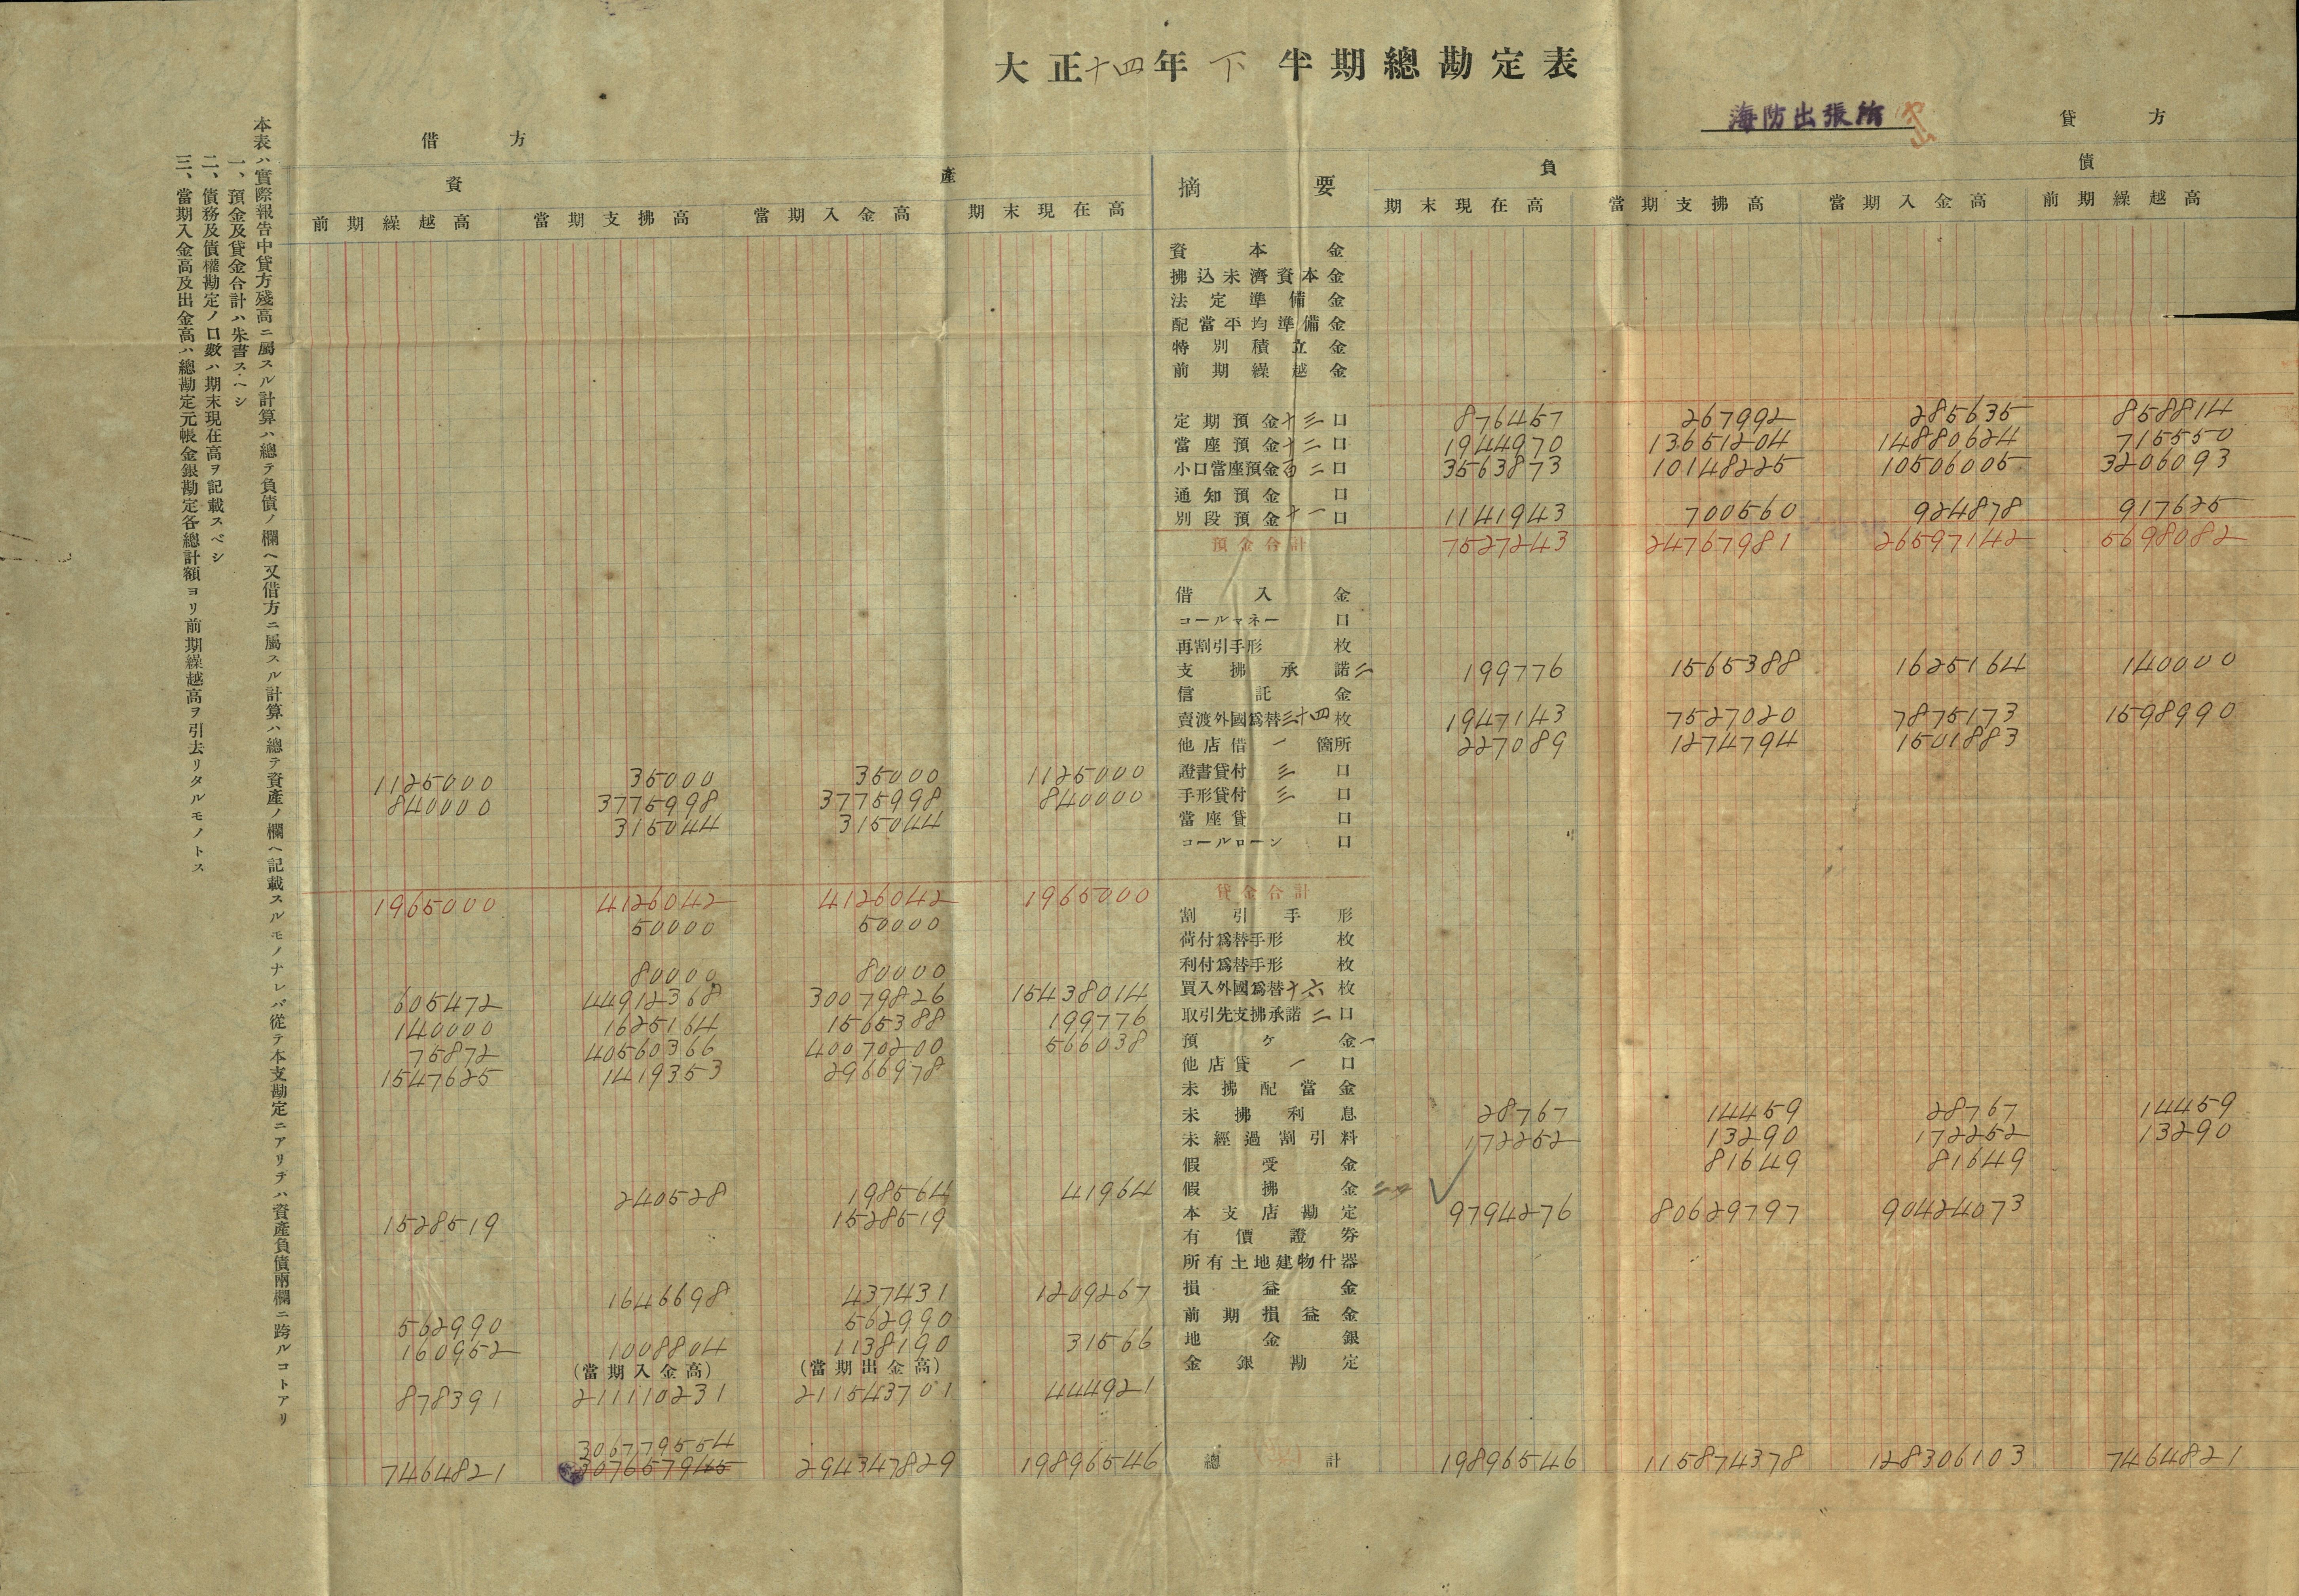 大正十四年下半期總勘定表
海防出張所
借方
貸方
資產
摘要
負債
前期繰越高 當期支拂高 當期入金高 期末現在高 期末現在高 當期支拂高 當期入金高 前期繰越高
資本金
拂込未濟資本金
法定準備金
配當平均準備金
特別積立金
前期繰越金
定期預金十三口 876457 267992 285635 858814
當座預金十二口 1944970 13651204 14880624 715550
小口當座預金百二口 3563873 10148225 10506005 3206093
通知預金 口
別段預金十一口 1141943 700560 924878 917625
預金合計 7527243 24767981 26597142 5698082
借入金
コールマネー 口
再割引手形 枚
支拂承諾二 199776 1565388 1625164 140000
信託金
賣渡外國爲替三十四枚 1947143 7527020 7875173 1598990
他店借一箇所 227089 1274794 1501883
1125000 35000 35000 1125000 證書貸付三口
840000 3775998 3775998 840000 手形貸付三口
315044 315044 當座貸 口
コールローン 口
1965000 4126042 4126042 1965000 貸金合計
50000 50000 割引手形
荷付爲替手形 枚
80000 80000 利付爲替手形 枚
605472 44912368 30079826 15438014 買入外國爲替十六枚
140000 1625164 1565388 199776 取引先支拂承諾二口
75872 40560366 40070200 566038 預ケ金一
1547625 1419353 2966978 他店貸一口
未拂配當金
未拂利息 28767 14459 28767 14459
未經過割引料 172252 13290 172252 13290
假受金 81649 81649
240528 198564 41964 假拂金二口
1528519 1528519 本支店勘定 9794276 80629797 90424073
有價證券
所有土地建物什器
1646698 437431 1209267 損益金
562990 562990 前期損益金
160952 1008804 1138190 31566 地金銀
(當期入金高) (當期出金高) 金銀勘定
878391 211110231 211543701 444921
306779554
7464821 307657945 294347829 19896546 總計 19896546 115874378 128306103 7464821
本表ハ實際報告中貸方殘高ニ屬スル計算ハ總テ負債ノ欄ヘ又借方ニ屬スル計算ハ總テ資產ノ欄ヘ記載スルモノナレバ從テ本支勘定ニアリテハ資產負債兩欄ニ跨ルコトアリ
一、預金及貸金合計ハ朱書スヘシ
二、債務及債權勘定ノ口數ハ期末現在高ヲ記載スベシ
三、當期入金高及出金高ハ總勘定元帳金銀勘定各總計額ヨリ前期繰越高ヲ引去リタルモノトス